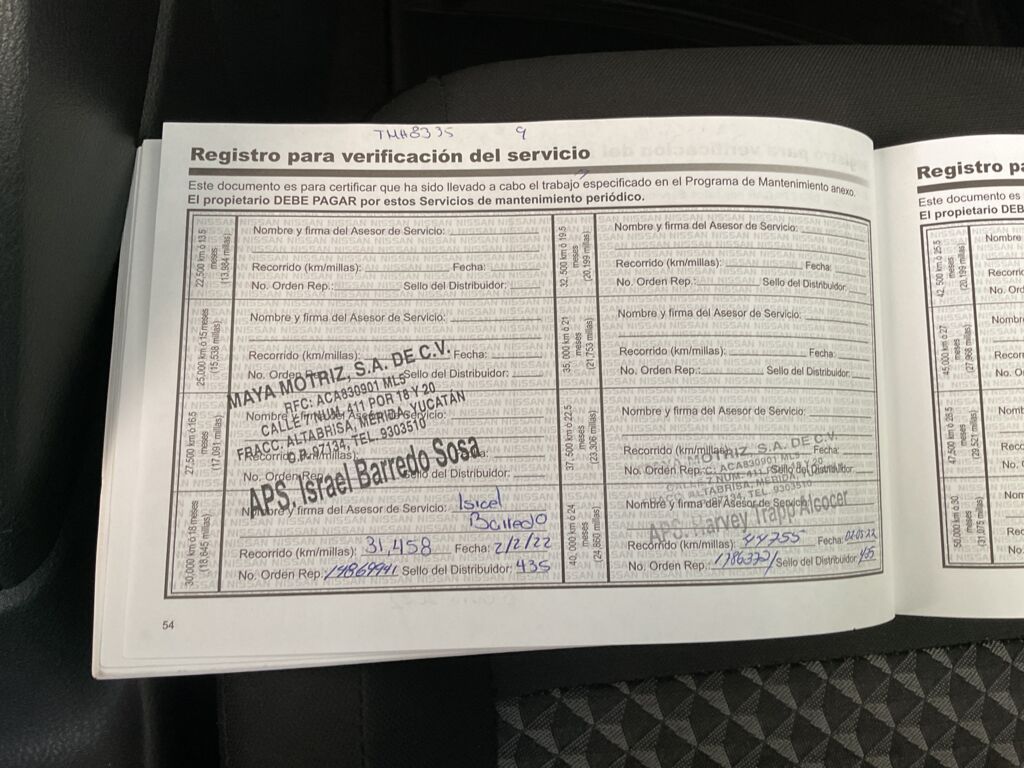 TMH833S 9
Registro para verificación del servicio
Este documento es para certificar que ha sido llevado a cabo el trabajo especificado en el Programa de Mantenimiento anexo.
El propietario DEBE PAGAR por estos Servicios de mantenimiento periódico.
22,500 km ó 13.5 meses (13,984 millas)
Nombre y firma del Asesor de Servicio:
Recorrido (km/millas): Fecha:
No. Orden Rep.: Sello del Distribuidor:
32,500 km ó 19.5 meses (20,199 millas)
Nombre y firma del Asesor de Servicio:
Recorrido (km/millas): Fecha:
No. Orden Rep.: Sello del Distribuidor:
25,000 km ó 15 meses (15,538 millas)
Nombre y firma del Asesor de Servicio:
Recorrido (km/millas): Fecha:
No. Orden Rep. Sello del Distribuidor:
35,000 km ó 21 meses (21,753 millas)
Nombre y firma del Asesor de Servicio:
Recorrido (km/millas): Fecha:
No. Orden Rep.: Sello del Distribuidor:
MAYA MOTRIZ, S.A. DE C.V.
RFC: ACA830901 ML5
CALLE 7 NUM. 411 POR 18 Y 20
FRACC. ALTABRISA, MERIDA, YUCATÁN
C.P. 97134, TEL. 9303510
APS. Israel Barredo Sosa
27,500 km ó 16.5 meses (17,091 millas)
Nombre y firma del Asesor de Servicio:
Recorrido (km/millas): Fecha:
No. Orden Rep. Sello del Distribuidor:
37,500 km ó 22.5 meses (23,306 millas)
Nombre y firma del Asesor de Servicio:
Recorrido (km/millas): Fecha:
No. Orden Rep. Sello del Distribuidor:
MOTRIZ, S.A. DE C.V.
ACA830901 ML5
7 NUM. 411
ALTABRISA, MERIDA,
97134, TEL. 9303510
APS. Harvey Trapp Alcocer
30,000 km ó 18 meses (18,645 millas)
Nombre y firma del Asesor de Servicio:
Recorrido (km/millas): 31,458 Fecha: 2/2/22
No. Orden Rep. Sello del Distribuidor: 435
40,000 km ó 24 meses (24,860 millas)
Nombre y firma del Asesor de Servicio:
Recorrido (km/millas): 44755 Fecha:
No. Orden Rep.: Sello del Distribuidor:
54
Registro pa
Este documento es
El propietario DEB
42,500 km ó 25.5 meses
Nombre
Recorrid
No. Ord
45,000 km ó 27 meses
Nomb
Recor
No. O
47,500 km ó 28.5 meses
Nomb
Reco
No.
50,000 km ó 30 meses
Nom
Rec
No.